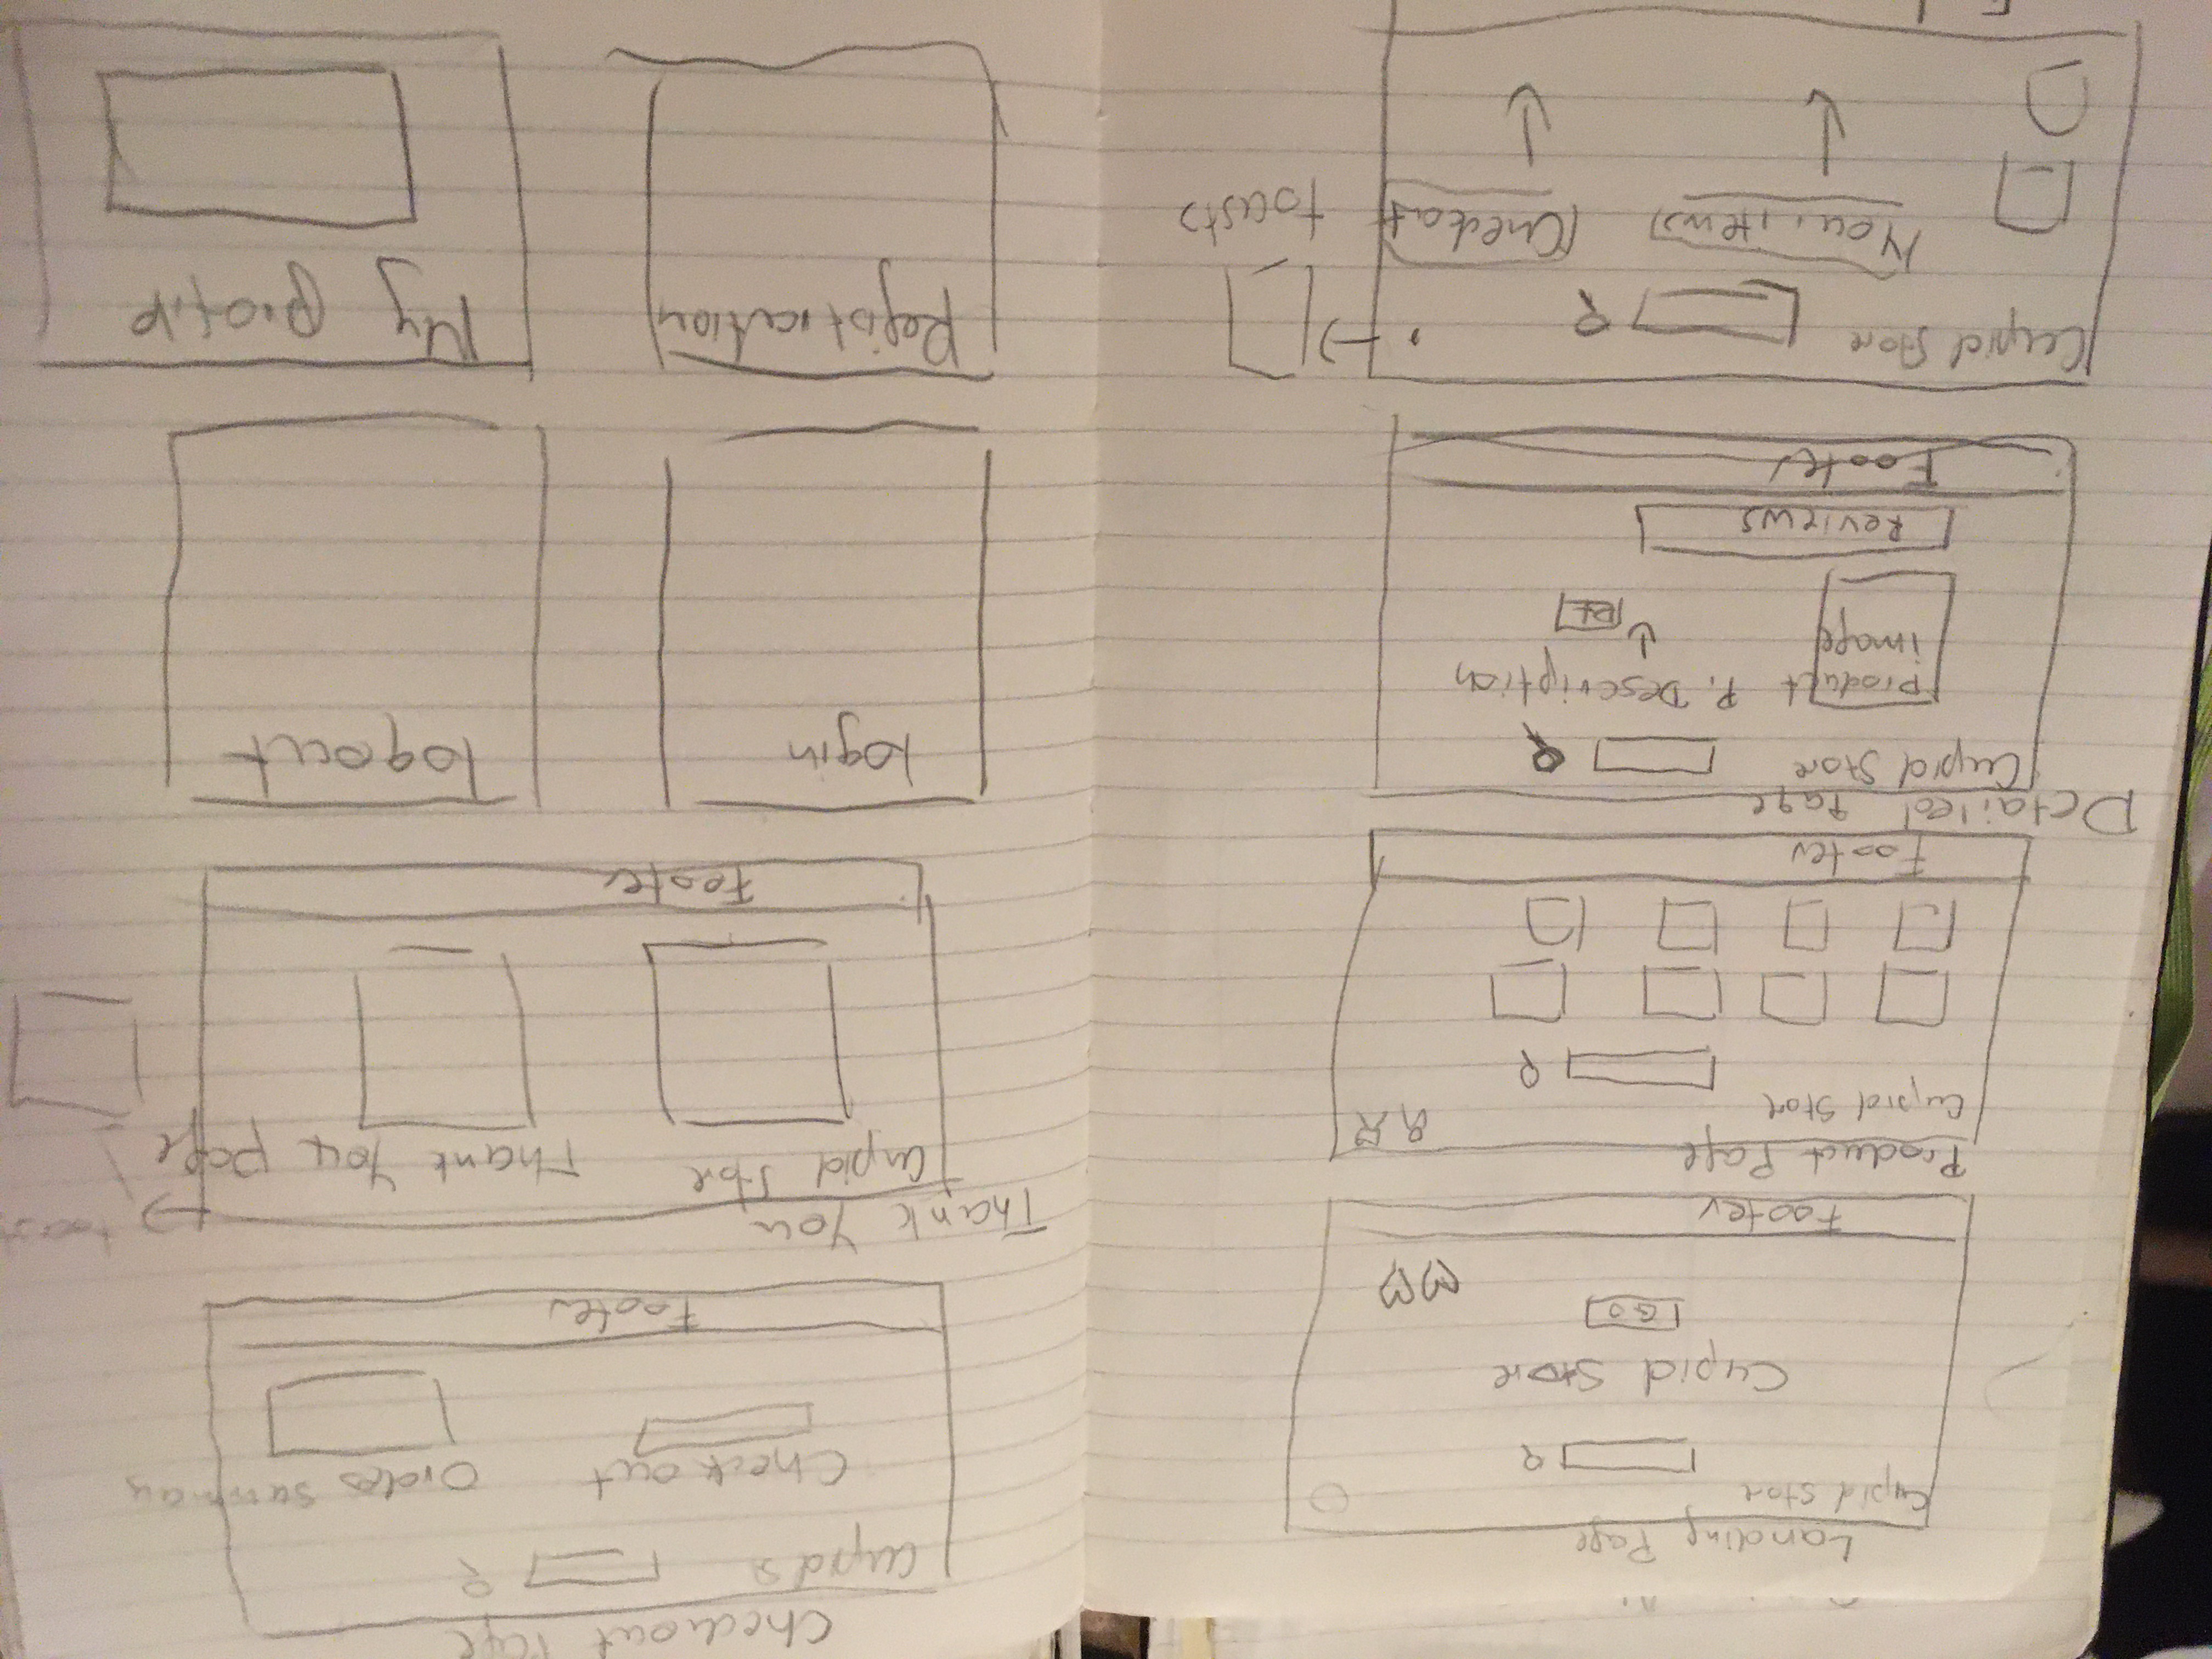 Landing Page
Cupid Store
Cupid Store
GO
Footer
Product Page
Cupid Store
Footer
Detailed Page
Cupid Store
Product image
P. Description
Reviews
Footer
Cupid Store
Your items
Checkout
toasts
Checkout Page
Cupid S
Checkout
Order summary
Footer
Thank You
Cupid Store
Thank You page
Footer
Login
logout
Registration
My profile